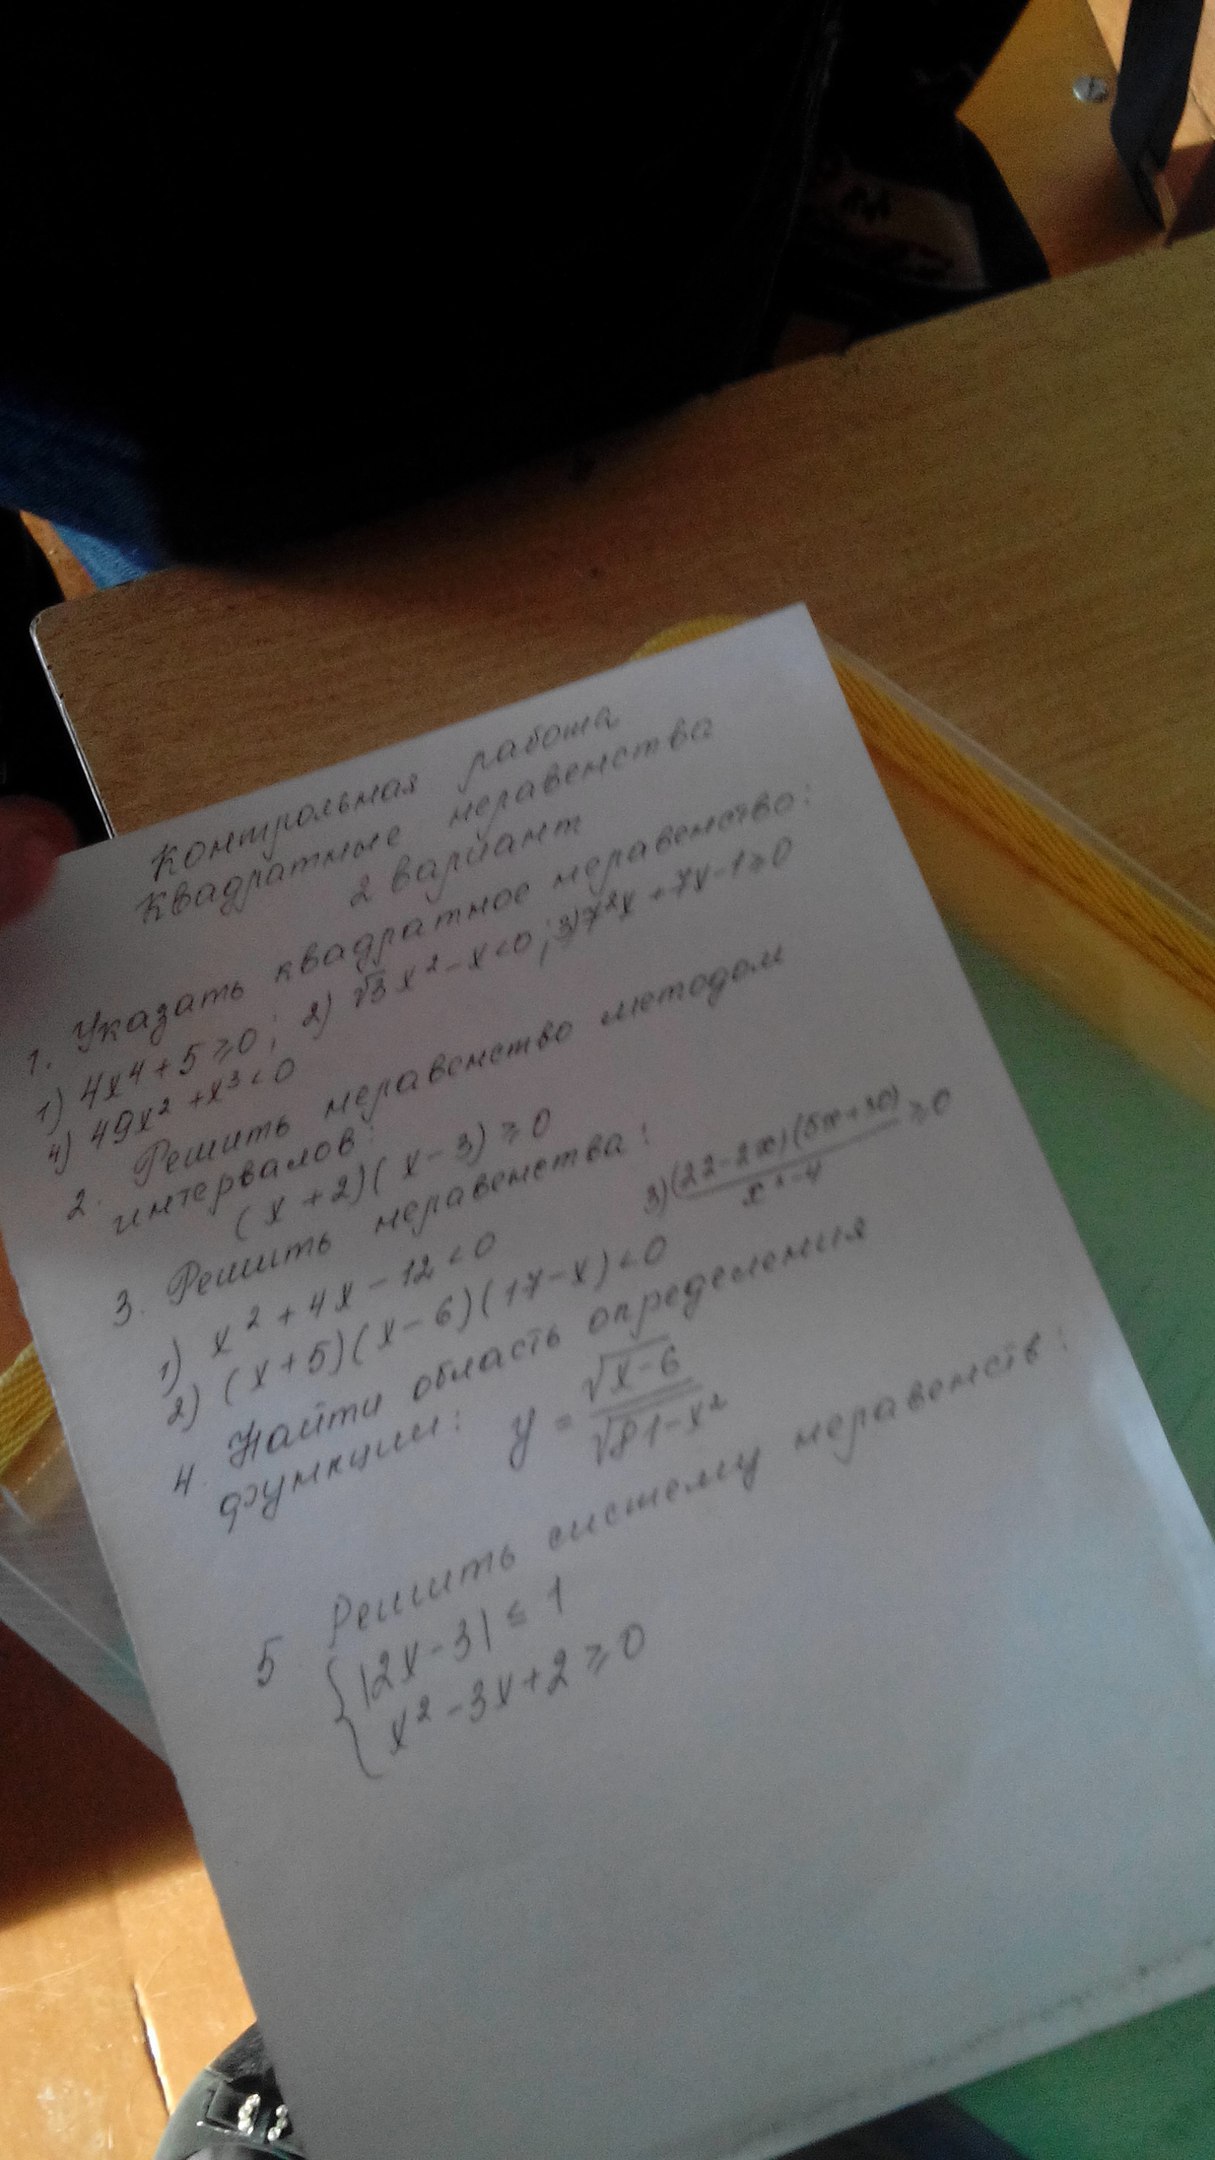 Контрольная работа
Квадратные неравенства
2 вариант
1. Указать квадратное неравенство:
1) 4x⁴+5≥0; 2) √3x²-x<0; 3) 7²x+7x-1≥0
4) 49x²+x³<0
2. Решить неравенство методом
интервалов:
(x+2)(x-3)≥0
3. Решить неравенства:
1) x²+4x-12<0
2) (x+5)(x-6)(17-x)<0
3) (22-2x)(5x+30) / x²-4 ≥0
4. Найти область определения
функции: y = √x-6 / √81-x²
5 Решить систему неравенств:
{ |2x-3|≤1
x²-3x+2≥0